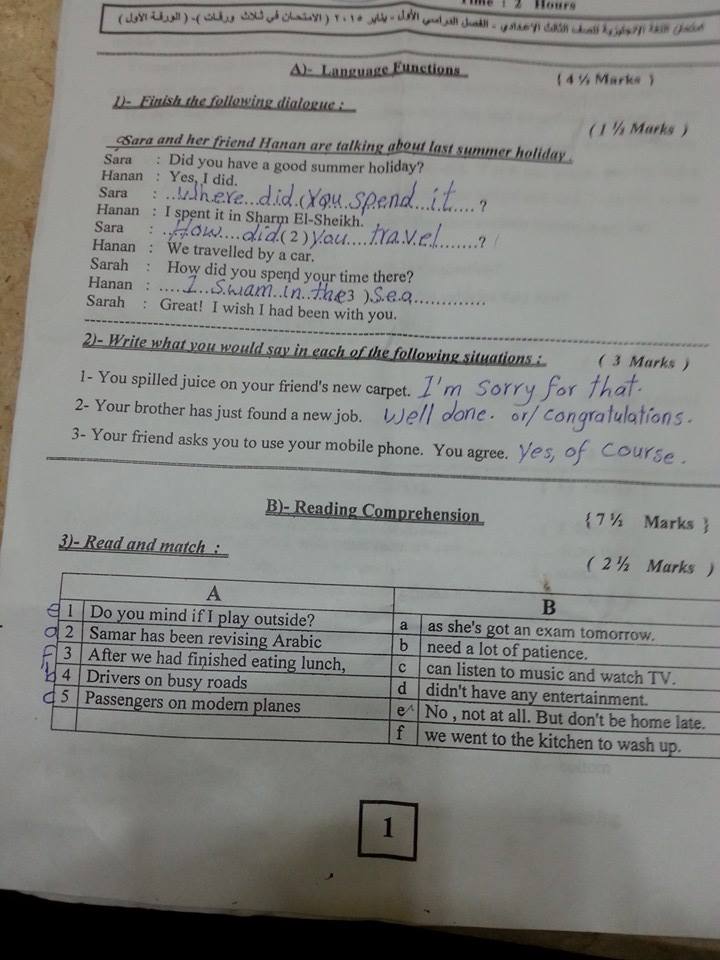 Time : 2 Hours
امتحان اللغة الإنجليزية للصف الثالث الإعدادي - الفصل الدراسي الأول - يناير ٢٠١٥ ( الامتحان في ثلاث ورقات ) - ( الورقة الأولى )
A)- Language Functions { 4 ½ Marks }
1)- Finish the following dialogue : ( 1 ½ Marks )
Sara and her friend Hanan are talking about last summer holiday .
Sara : Did you have a good summer holiday?
Hanan : Yes, I did.
Sara : ..Where...did.(you.spend...it....?
Hanan : I spent it in Sharm El-Sheikh.
Sara : ..How....did(2)you....travel........?
Hanan : We travelled by a car.
Sarah : How did you spend your time there?
Hanan : ....I...swam..in..the3 ).sea..............
Sarah : Great! I wish I had been with you.
2)- Write what you would say in each of the following situations : ( 3 Marks )
1- You spilled juice on your friend's new carpet. I'm sorry for that.
2- Your brother has just found a new job. Well done. or/ congratulations.
3- Your friend asks you to use your mobile phone. You agree. yes, of course.
B)- Reading Comprehension { 7 ½ Marks }
3)- Read and match : ( 2 ½ Marks )
A B
e 1 Do you mind if I play outside? a as she's got an exam tomorrow.
a 2 Samar has been revising Arabic b need a lot of patience.
f 3 After we had finished eating lunch, c can listen to music and watch TV.
b 4 Drivers on busy roads d didn't have any entertainment.
c 5 Passengers on modern planes e No , not at all. But don't be home late.
f we went to the kitchen to wash up.
1